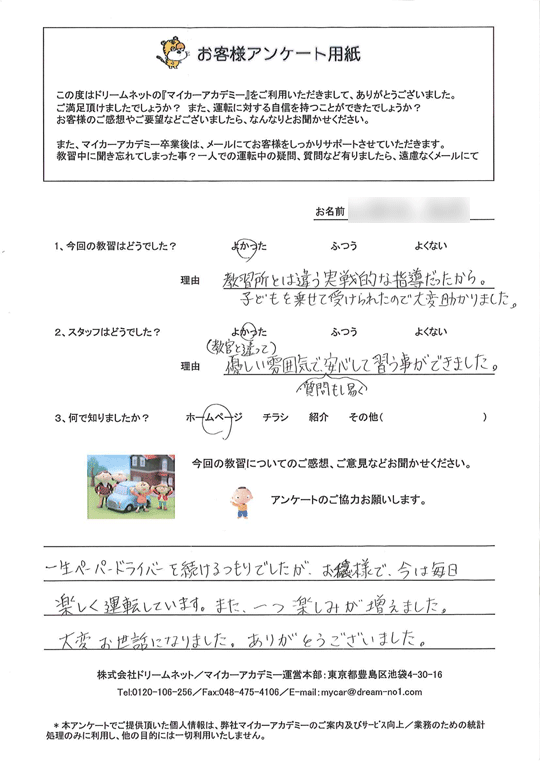 お客様アンケート用紙
この度はドリームネットの『マイカーアカデミー』をご利用いただきまして、ありがとうございました。
ご満足頂けましたでしょうか？ また、運転に対する自信を持つことができたでしょうか？
お客様のご感想やご要望などございましたら、なんなりとお聞かせください。
また、マイカーアカデミー卒業後は、メールにてお客様をしっかりサポートさせていただきます。
教習中に聞き忘れてしまった事？一人での運転中の疑問、質問など有りましたら、遠慮なくメールにて
お名前
1、今回の教習はどうでした？ よかった ふつう よくない
理由 教習所とは違う実戦的な指導だったから。
子どもを乗せて受けられたので大変助かりました。
2、スタッフはどうでした？ よかった ふつう よくない
(教官と違って)
理由 優しい雰囲気で、安心して習う事ができました。
質問もし易く
3、何で知りましたか？ ホームページ チラシ 紹介 その他( )
今回の教習についてのご感想、ご意見などお聞かせください。
アンケートのご協力お願いします。
一生ペーパードライバーを続けるつもりでしたが、お蔭様で、今は毎日
楽しく運転しています。また、一つ楽しみが増えました。
大変お世話になりました。ありがとうございました。
株式会社ドリームネット／マイカーアカデミー運営本部：東京都豊島区池袋4-30-16
Tel:0120-106-256／Fax:048-475-4106／E-mail:mycar@dream-no1.com
＊本アンケートでご提供頂いた個人情報は、弊社マイカーアカデミーのご案内及びサービス向上／業務のための統計
処理のみに利用し、他の目的には一切利用いたしません。